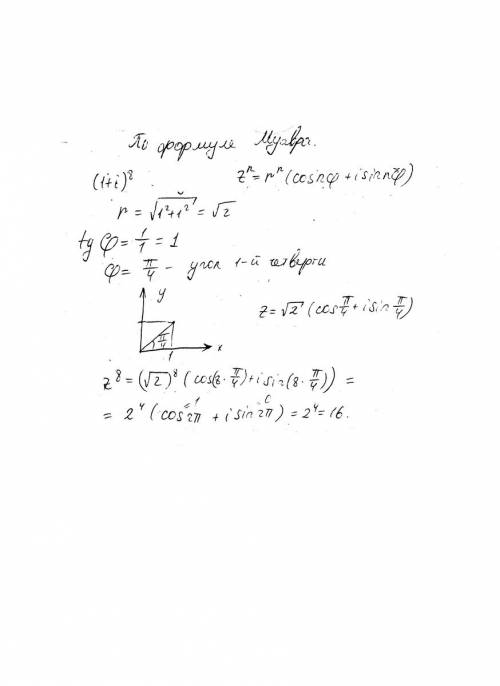 По формуле Муавра.
(1+i)⁸ zⁿ = rⁿ (cos nφ + i sin nφ)
r = √(1²+1²) = √2
tg φ = 1/1 = 1
φ = π/4 – угол 1-й четверти
y
z = √2 (cos π/4 + i sin π/4)
π/4
1 x
z⁸ = (√2)⁸ (cos(8·π/4) + i sin(8·π/4)) =
=1 =0
= 2⁴ (cos 2π + i sin 2π) = 2⁴ = 16.